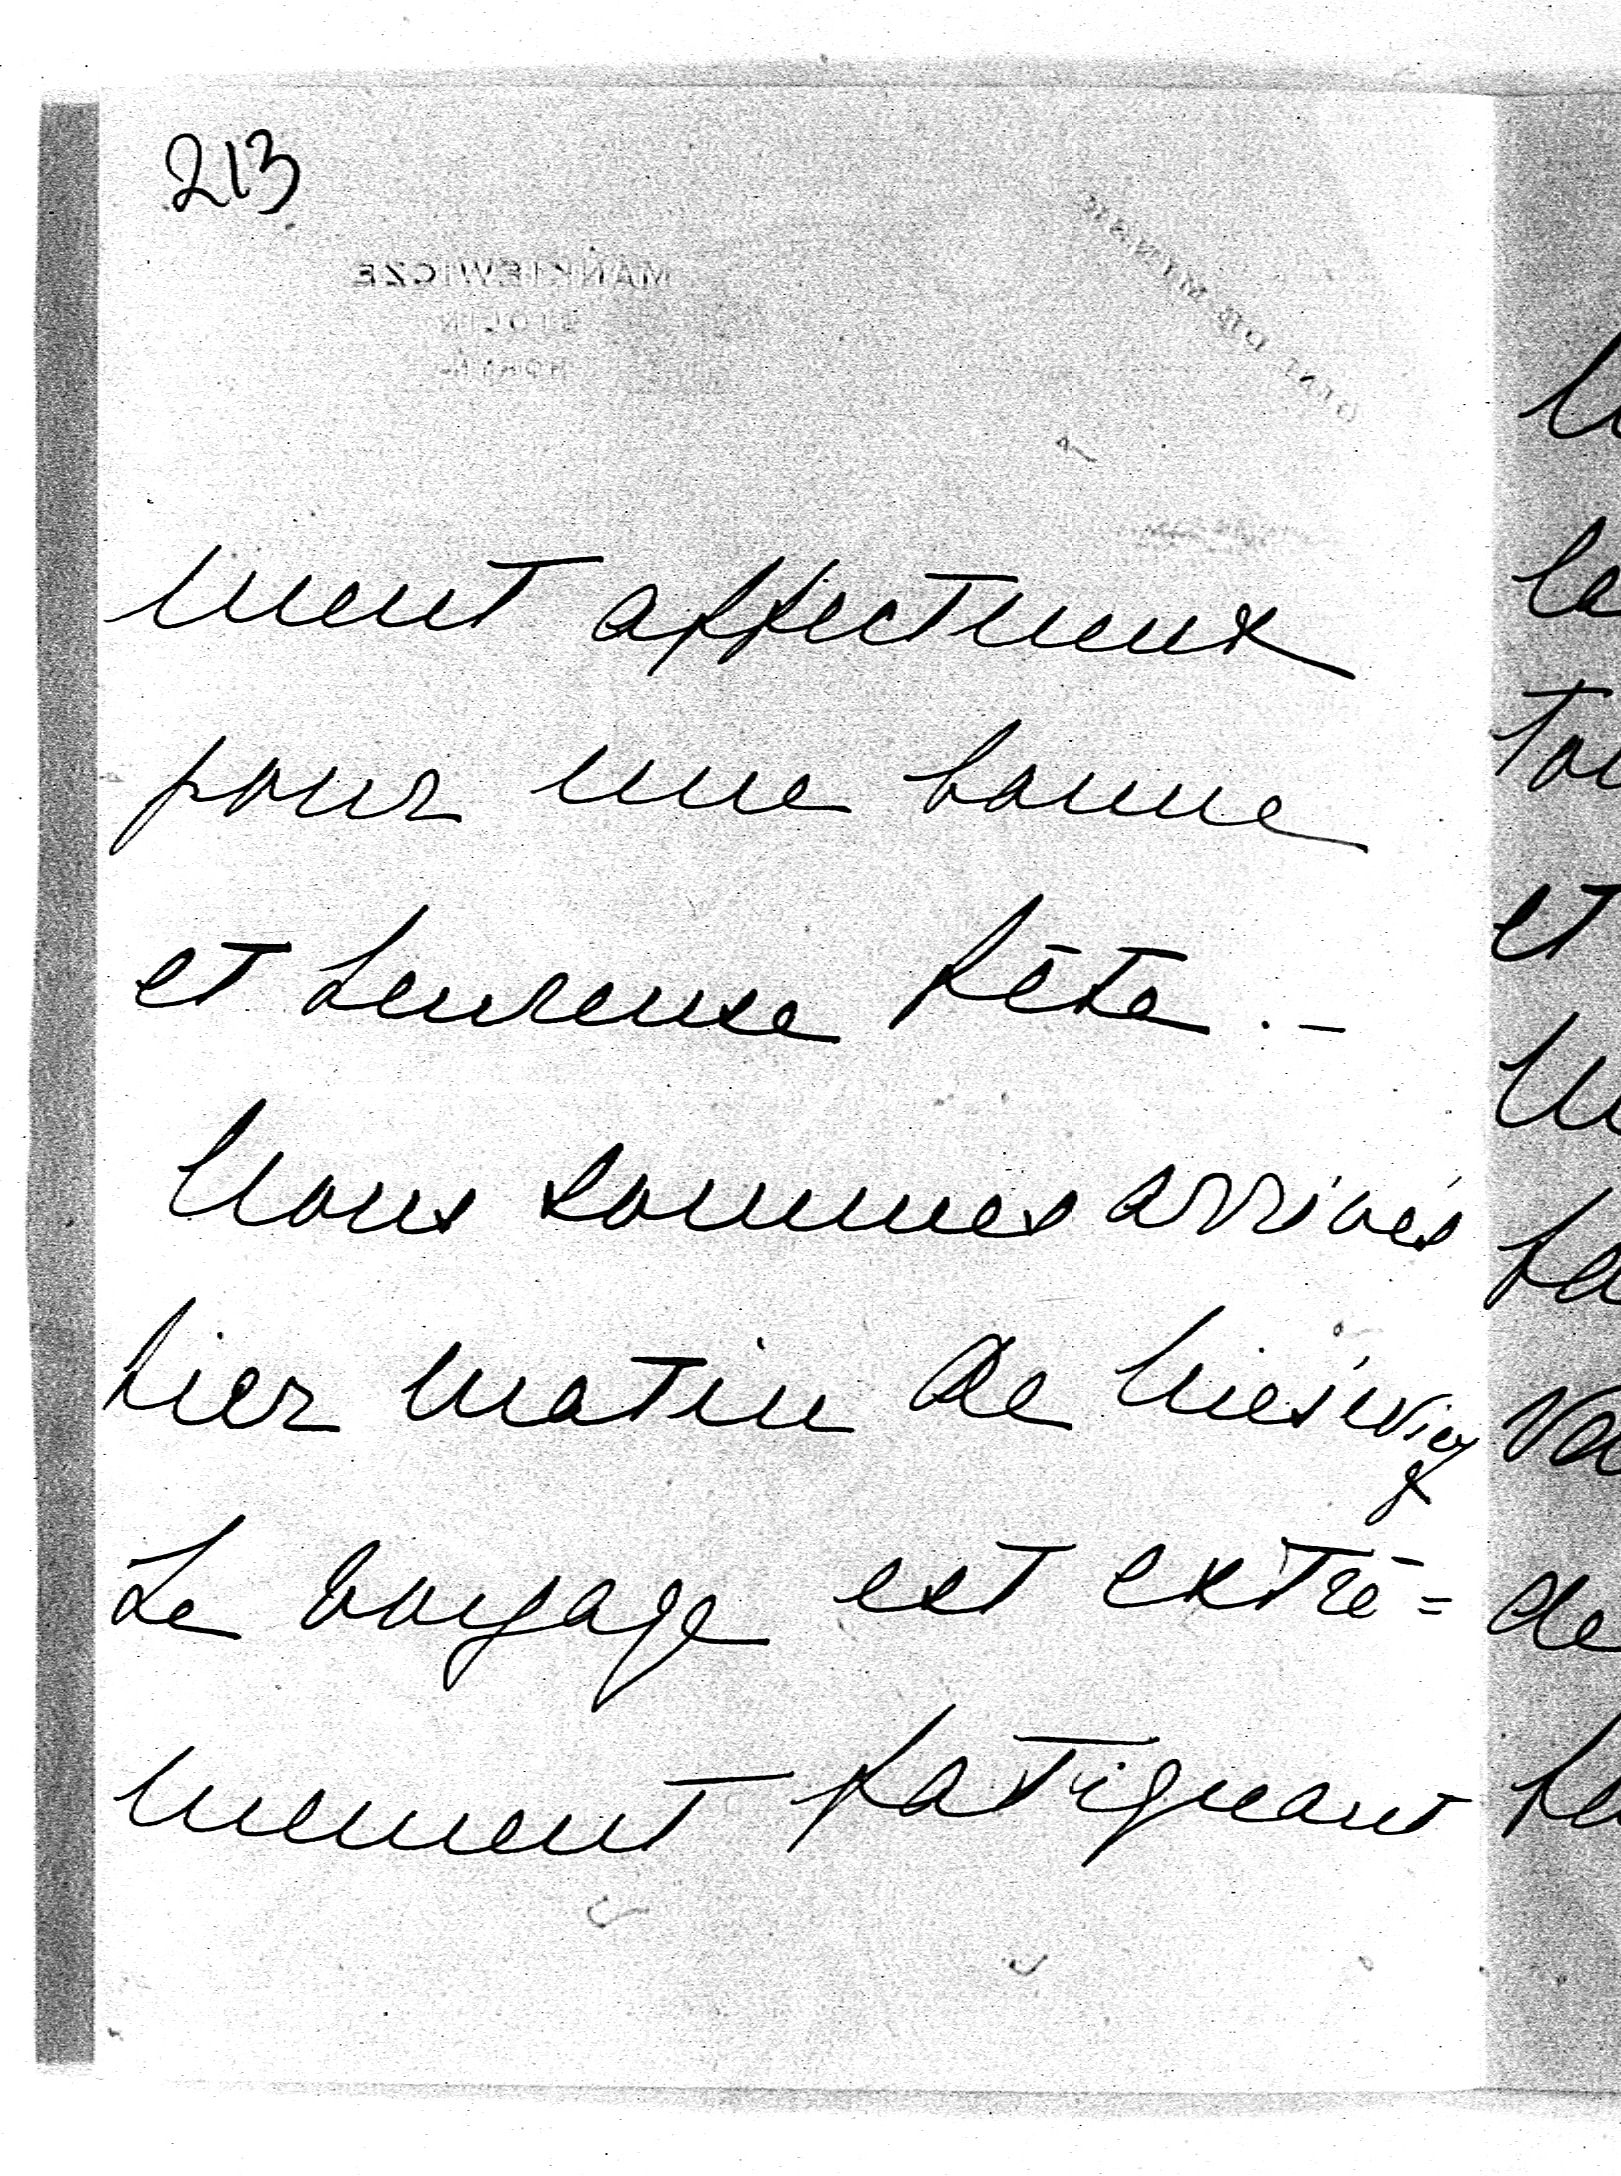 213
MANKIEWICZE
STOLIN
ment affectueux
pour une bonne
et heureuse fête. –
Nous sommes arrivés
hier matin de Nieświerz
Le voyage est extrê=
mement fatigant